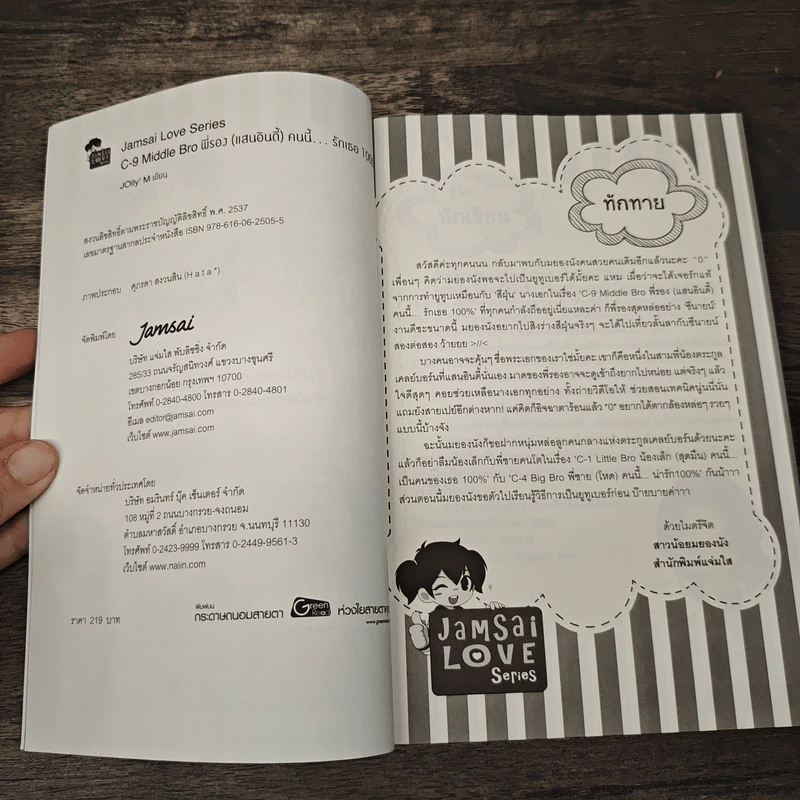 Jamsai Love Series
C-9 Middle Bro พี่รอง (แสนอินดี้) คนนี้... รักเธอ 100
JOlly' M เขียน
สงวนลิขสิทธิ์ตามพระราชบัญญัติลิขสิทธิ์ พ.ศ. 2537
เลขมาตรฐานสากลประจำหนังสือ ISBN 978-616-06-2505-5
ภาพประกอบ ศุภรดา สงวนสิน (H a t a *)
จัดพิมพ์โดย Jamsai
บริษัท แจ่มใส พับลิชชิ่ง จำกัด
285/33 ถนนจรัญสนิทวงศ์ แขวงบางขุนศรี
เขตบางกอกน้อย กรุงเทพฯ 10700
โทรศัพท์ 0-2840-4800 โทรสาร 0-2840-4801
อีเมล editor@jamsai.com
เว็บไซต์ www.jamsai.com
จัดจำหน่ายทั่วประเทศโดย
บริษัท อมรินทร์ บุ๊ค เซ็นเตอร์ จำกัด
108 หมู่ที่ 2 ถนนบางกรวย-จงถนอม
ตำบลมหาสวัสดิ์ อำเภอบางกรวย จ.นนทบุรี 11130
โทรศัพท์ 0-2423-9999 โทรสาร 0-2449-9561-3
เว็บไซต์ www.naiin.com
ราคา 219 บาท
พิมพ์บน
กระดาษถนอมสายตา Green Read ห่วงใยสายตา
ทักทาย
สวัสดีค่ะทุกคนนน กลับมาพบกับมยองนังคนสวยคนเดิมอีกแล้วนะคะ ^0^
เพื่อนๆ คิดว่ามยองนังพอจะไปเป็นยูทูเบอร์ได้มั้ยคะ แหม เผื่อว่าจะได้เจอรักแท้
จากการทำยูทูบเหมือนกับ 'สีฝุ่น' นางเอกในเรื่อง 'C-9 Middle Bro พี่รอง (แสนอินดี้)
คนนี้... รักเธอ 100%' ที่ทุกคนกำลังถืออยู่เนี่ยแหละค่า ก็พี่รองสุดหล่ออย่าง 'ซีนายน์'
งานดีซะขนาดนี้ มยองนังอยากไปสิงร่างสีฝุ่นจริงๆ จะได้ไปเที่ยวลั้นลากับซีนายน์
สองต่อสอง ว้ายยย >//<
บางคนอาจจะคุ้นๆ ชื่อพระเอกของเราใช่มั้ยคะ เขาก็คือหนึ่งในสามพี่น้องตระกูล
เคลย์บอร์นที่แสนอินดี้นั่นเอง มาดของพี่รองอาจจะดูเข้าถึงยากไปหน่อย แต่จริงๆ แล้ว
ใจดีสุดๆ คอยช่วยเหลือนางเอกทุกอย่าง ทั้งถ่ายวิดีโอให้ ช่วยสอนเทคนิคนู่นนี่นั่น
แถมยังสายเปย์อีกต่างหาก! แค่คิดก็อิจฉาตาร้อนแล้ว *0* อยากได้ตากล้องหล่อๆ รวยๆ
แบบนี้บ้างจัง
ฉะนั้นมยองนังก็ขอฝากหนุ่มหล่อลูกคนกลางแห่งตระกูลเคลย์บอร์นด้วยนะคะ
แล้วก็อย่าลืมน้องเล็กกับพี่ชายคนโตในเรื่อง 'C-1 Little Bro น้องเล็ก (สุดมึน) คนนี้...
เป็นคนของเธอ 100%' กับ 'C-4 Big Bro พี่ชาย (โหด) คนนี้... น่ารัก100%' กันน้าาา
ส่วนตอนนี้มยองนังขอตัวไปเรียนรู้วิธีการเป็นยูทูเบอร์ก่อน บ๊ายบายค่าาา
ด้วยไมตรีจิต
สาวน้อยมยองนัง
สำนักพิมพ์แจ่มใส
JAMSAI
LOVE
Series